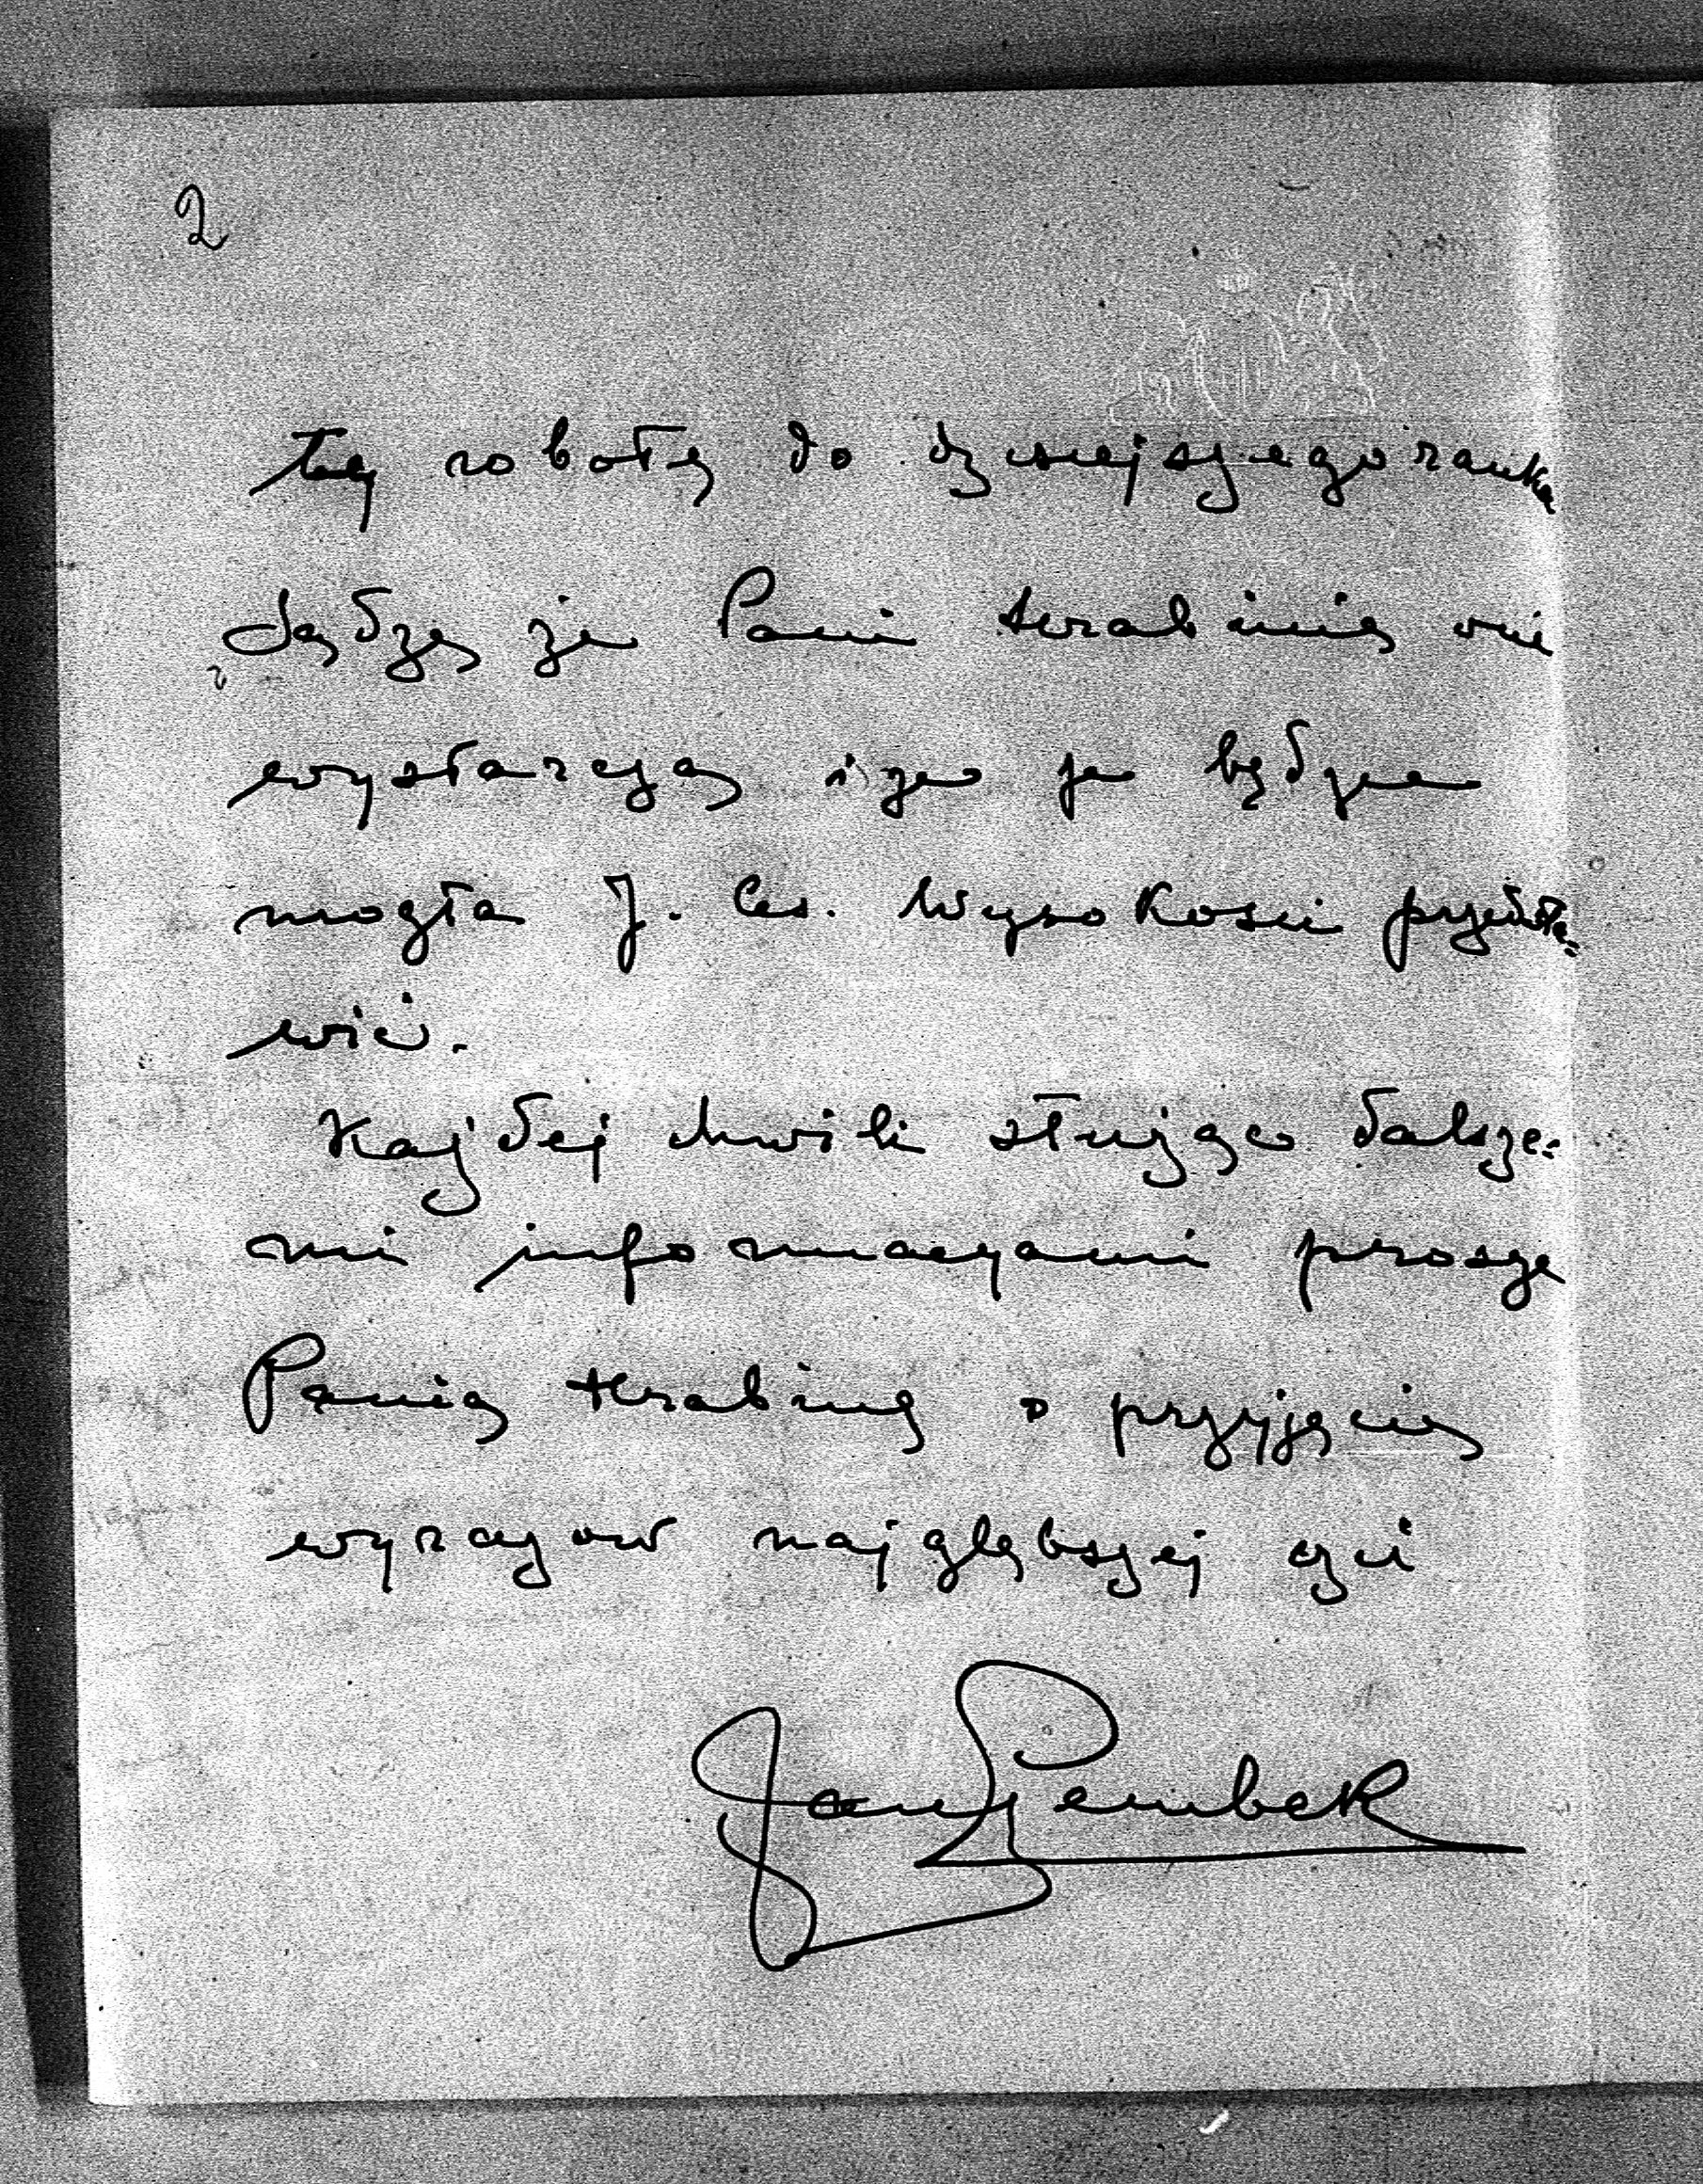 2
tę robotę do dzisiejszego ranka
Sądzę że Pani Hrabinie one
wystarczą i że je będzie
mogła J. Ces. Wysokości przedsta=
wić.
Każdej chwili służąc dalsze=
mi informacyami proszę
Panią Hrabinę o przyjęcie
wyrazów najgłębszej czci
Jan Szembek